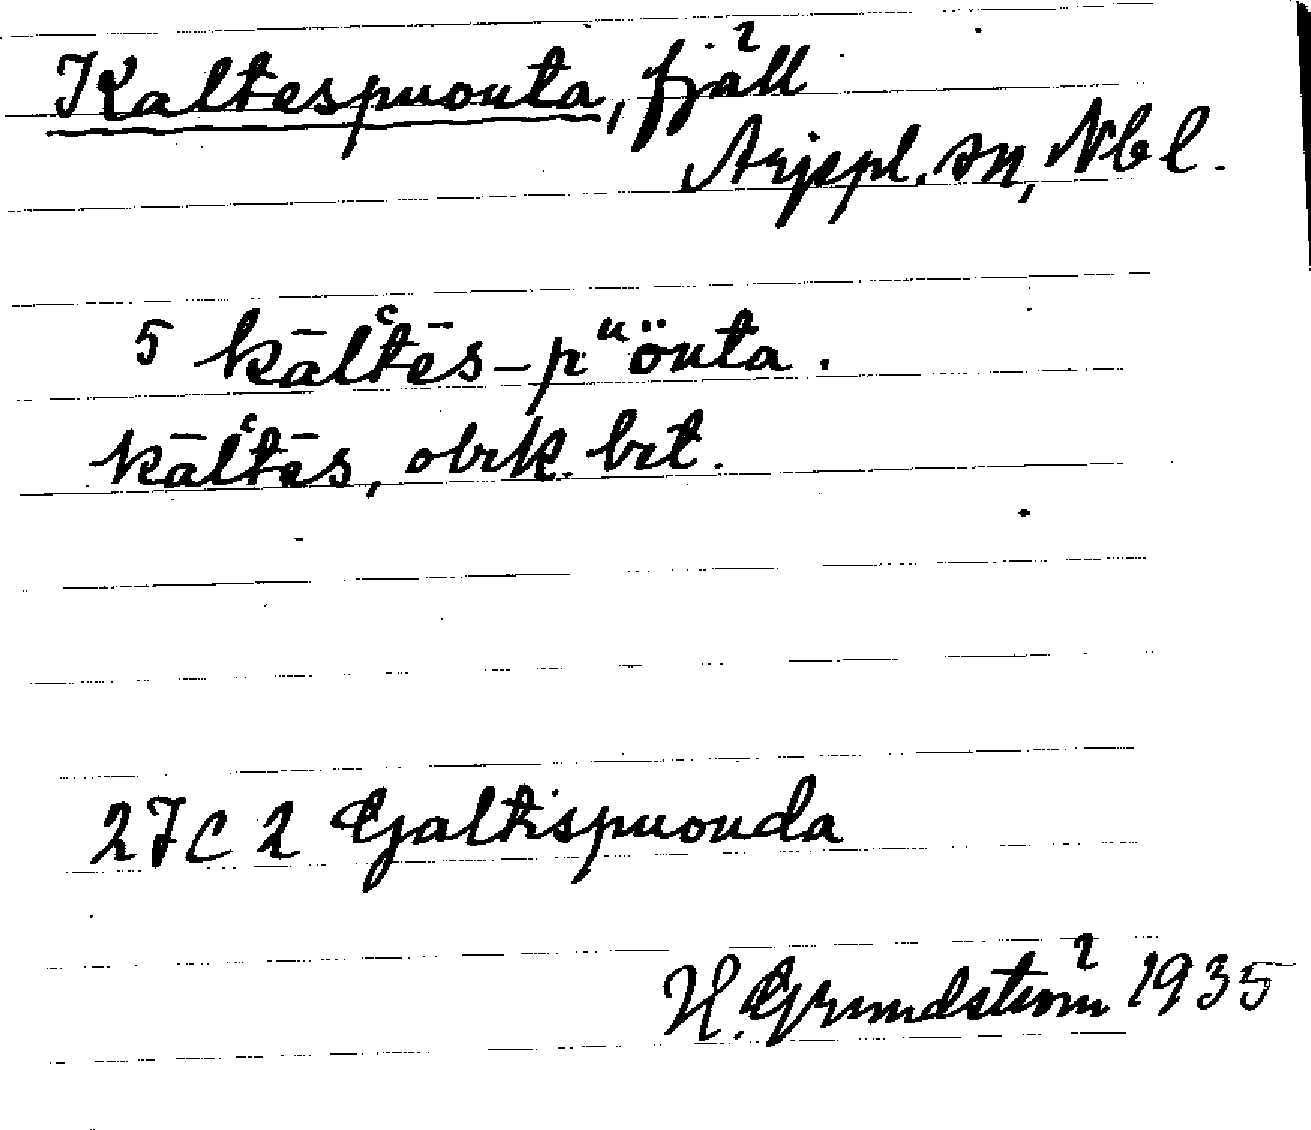 Kaltespuonta, fjäll
Arjepl. sn, Nbl.
5 kāl‘tēs-pᵘönta.
kāl‘tēs, obrk. brt.
27C2 Galtispuonda
H. Grundström 1935